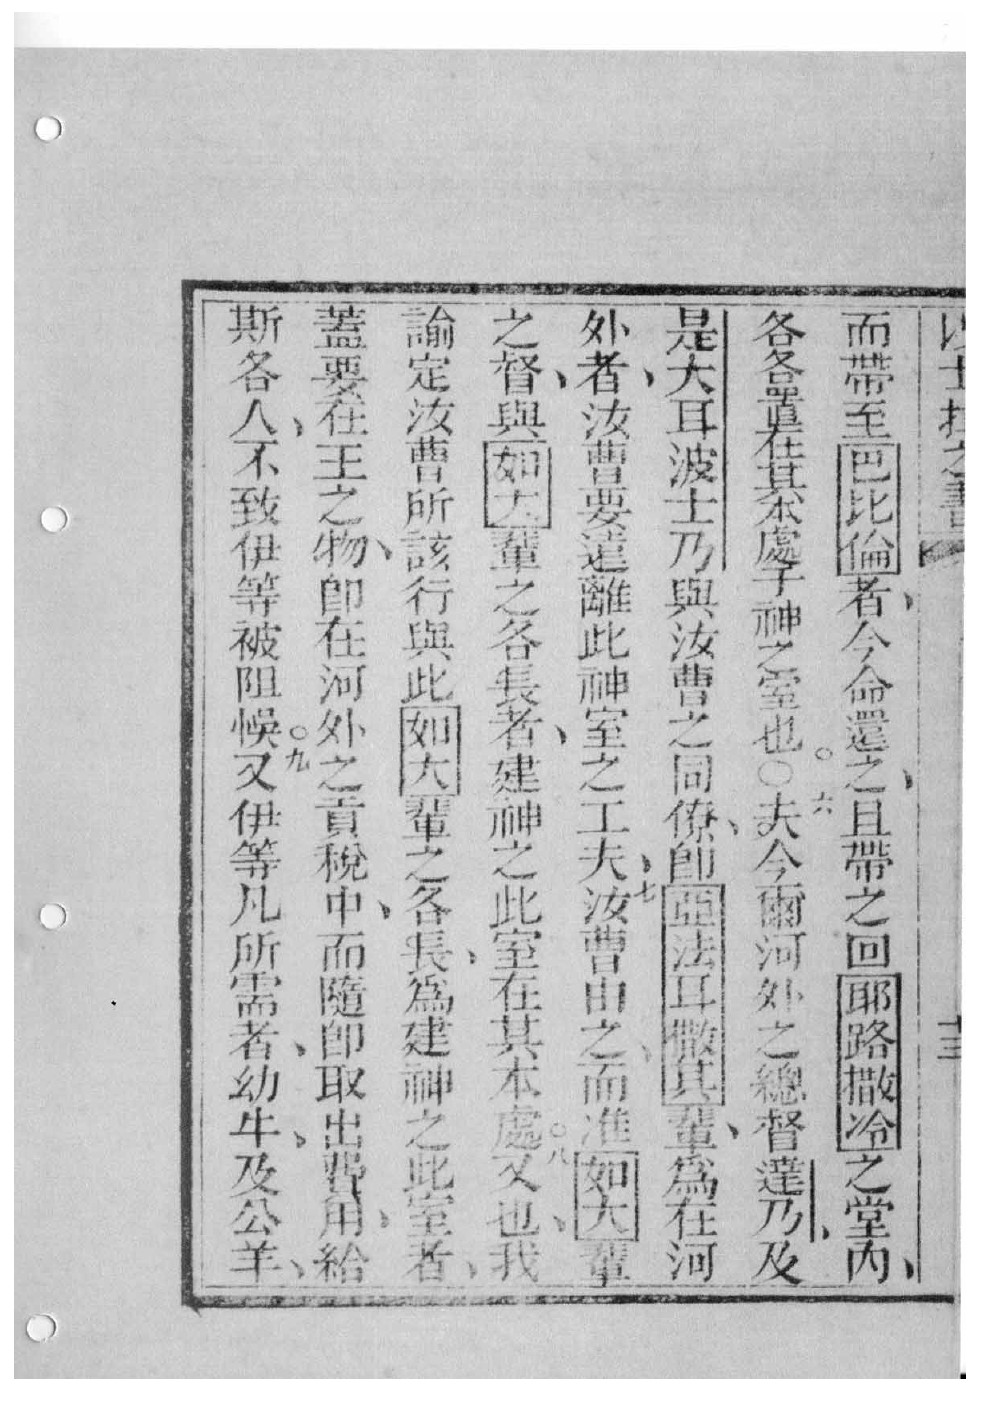 士 之書 十三
而帶至巴比倫者、今命還之、且帶之回耶路撒冷之堂內、
各各置在其本處于神之室也。○六夫今爾河外之總督達乃、及
是大耳波士乃與汝曹之同僚、卽亞法耳撒其輩、爲在河
外者、汝曹要遠離此神室之工夫、七汝曹由之、而准如大輩
之督、與如大輩之各長者、建神之此室在其本處。八又也、我
諭定汝曹所該行與此如大輩之各長、爲建神之此室者、
蓋要在王之物、卽在河外之貢稅中、而隨卽取出費用、給
斯各人、不致伊等被阻悞。九又伊等凡所需者、幼牛、及公羊、